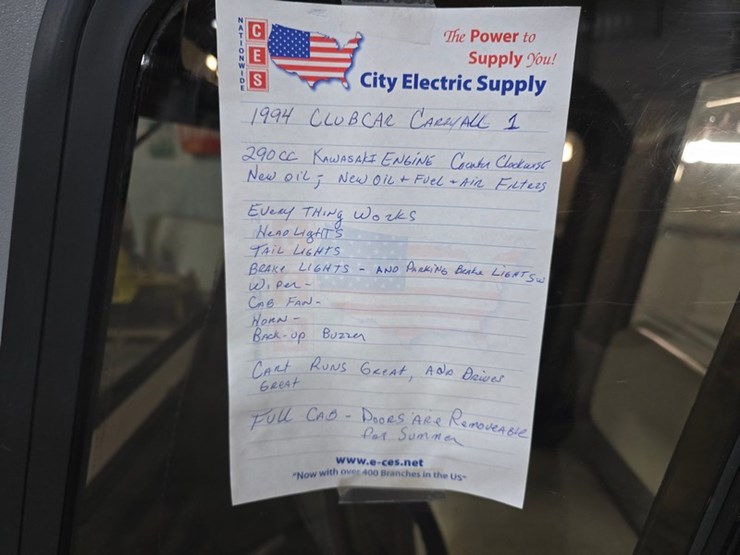 NATIONWIDE
CES
The Power to
Supply You!
City Electric Supply
1994 CLUBCAR CARRYALL 1
290cc KAWASAKI ENGINE Counter Clockwise
New oil; New Oil + Fuel + Air Filters
Every THING Works
HeadLights
TAIL LIGHTS
BRAKE LIGHTS - AND PARKING Brake LIGHT SW
Wiper -
CAB FAN -
HORN -
Back-up Buzzer
CART RUNS Great, AND Drives
Great
FULL CAB - Doors Are Removeable
for Summer
www.e-ces.net
"Now with over 400 Branches in the US"